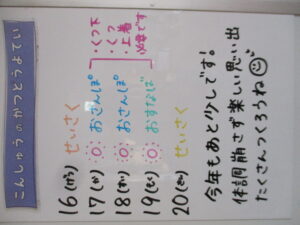 こんしゅうのかつどうよてい
16(げつ) せいさく
17(か) おさんぽ
18(すい) おさんぽ
19(もく) おすなば
20(きん) せいさく
・くつ下
・くつ
・上着
必要です
今年もあと少しです!
体調崩さず楽しい思い出
たくさんつくろうね